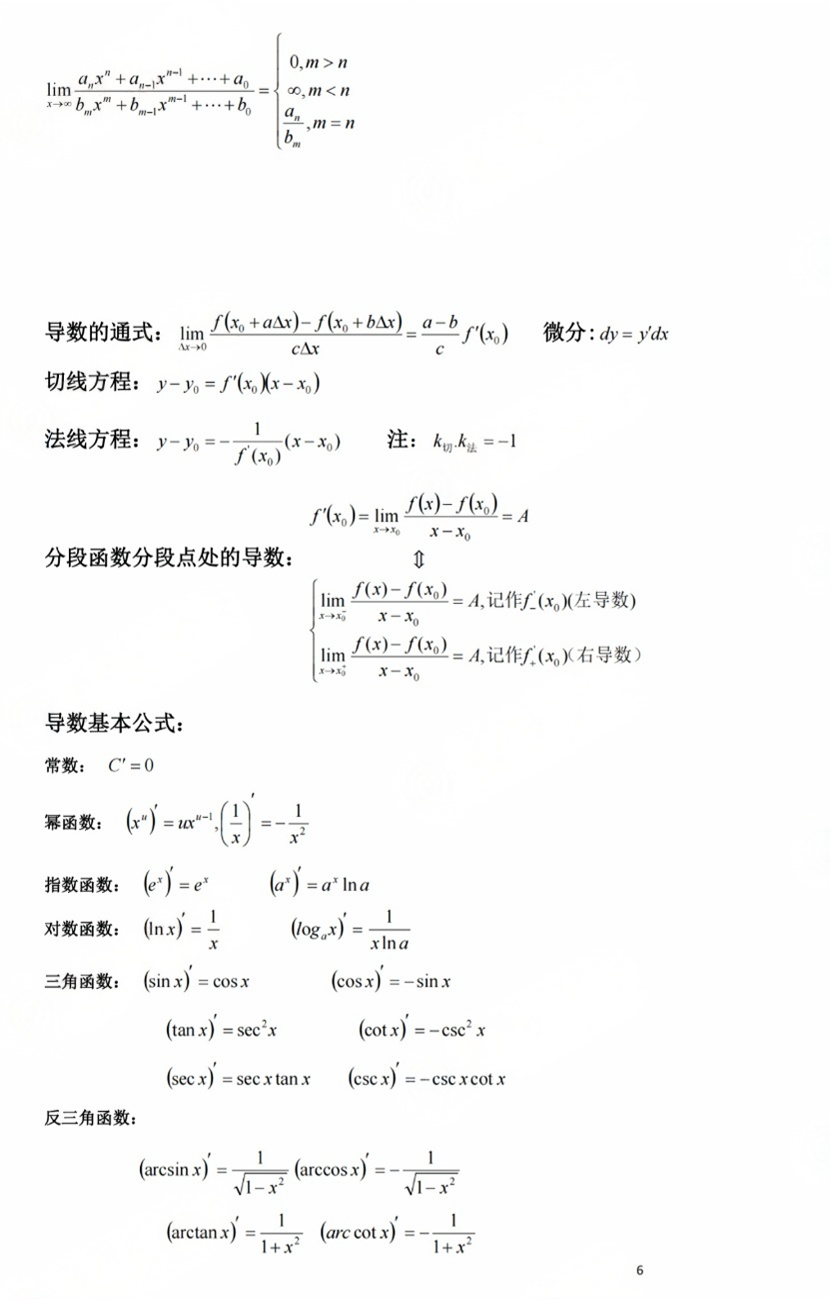 lim x→∞ (aₙxⁿ + aₙ₋₁xⁿ⁻¹ + ⋯ + a₀)/(bₘxᵐ + bₘ₋₁xᵐ⁻¹ + ⋯ + b₀) = { 0, m > n
∞, m < n
aₙ/bₘ, m = n
导数的通式： lim Δx→0 (f(x₀ + aΔx) − f(x₀ + bΔx))/(cΔx) = (a − b)/c f′(x₀) 微分: dy = y′dx
切线方程： y − y₀ = f′(x₀)(x − x₀)
法线方程： y − y₀ = − 1/f′(x₀) (x − x₀) 注： k切.k法 = −1
f′(x₀) = lim x→x₀ (f(x) − f(x₀))/(x − x₀) = A
分段函数分段点处的导数： ⇕
{ lim x→x₀⁻ (f(x) − f(x₀))/(x − x₀) = A,记作f₋′(x₀)(左导数)
lim x→x₀⁺ (f(x) − f(x₀))/(x − x₀) = A,记作f₊′(x₀)(右导数）
导数基本公式：
常数： C′ = 0
幂函数： (xᵘ)′ = uxᵘ⁻¹, (1/x)′ = − 1/x²
指数函数： (eˣ)′ = eˣ (aˣ)′ = aˣ ln a
对数函数： (ln x)′ = 1/x (logₐx)′ = 1/(x ln a)
三角函数： (sin x)′ = cos x (cos x)′ = − sin x
(tan x)′ = sec²x (cot x)′ = − csc² x
(sec x)′ = sec x tan x (csc x)′ = − csc x cot x
反三角函数：
(arcsin x)′ = 1/√(1 − x²) (arccos x)′ = − 1/√(1 − x²)
(arctan x)′ = 1/(1 + x²) (arc cot x)′ = − 1/(1 + x²)
6